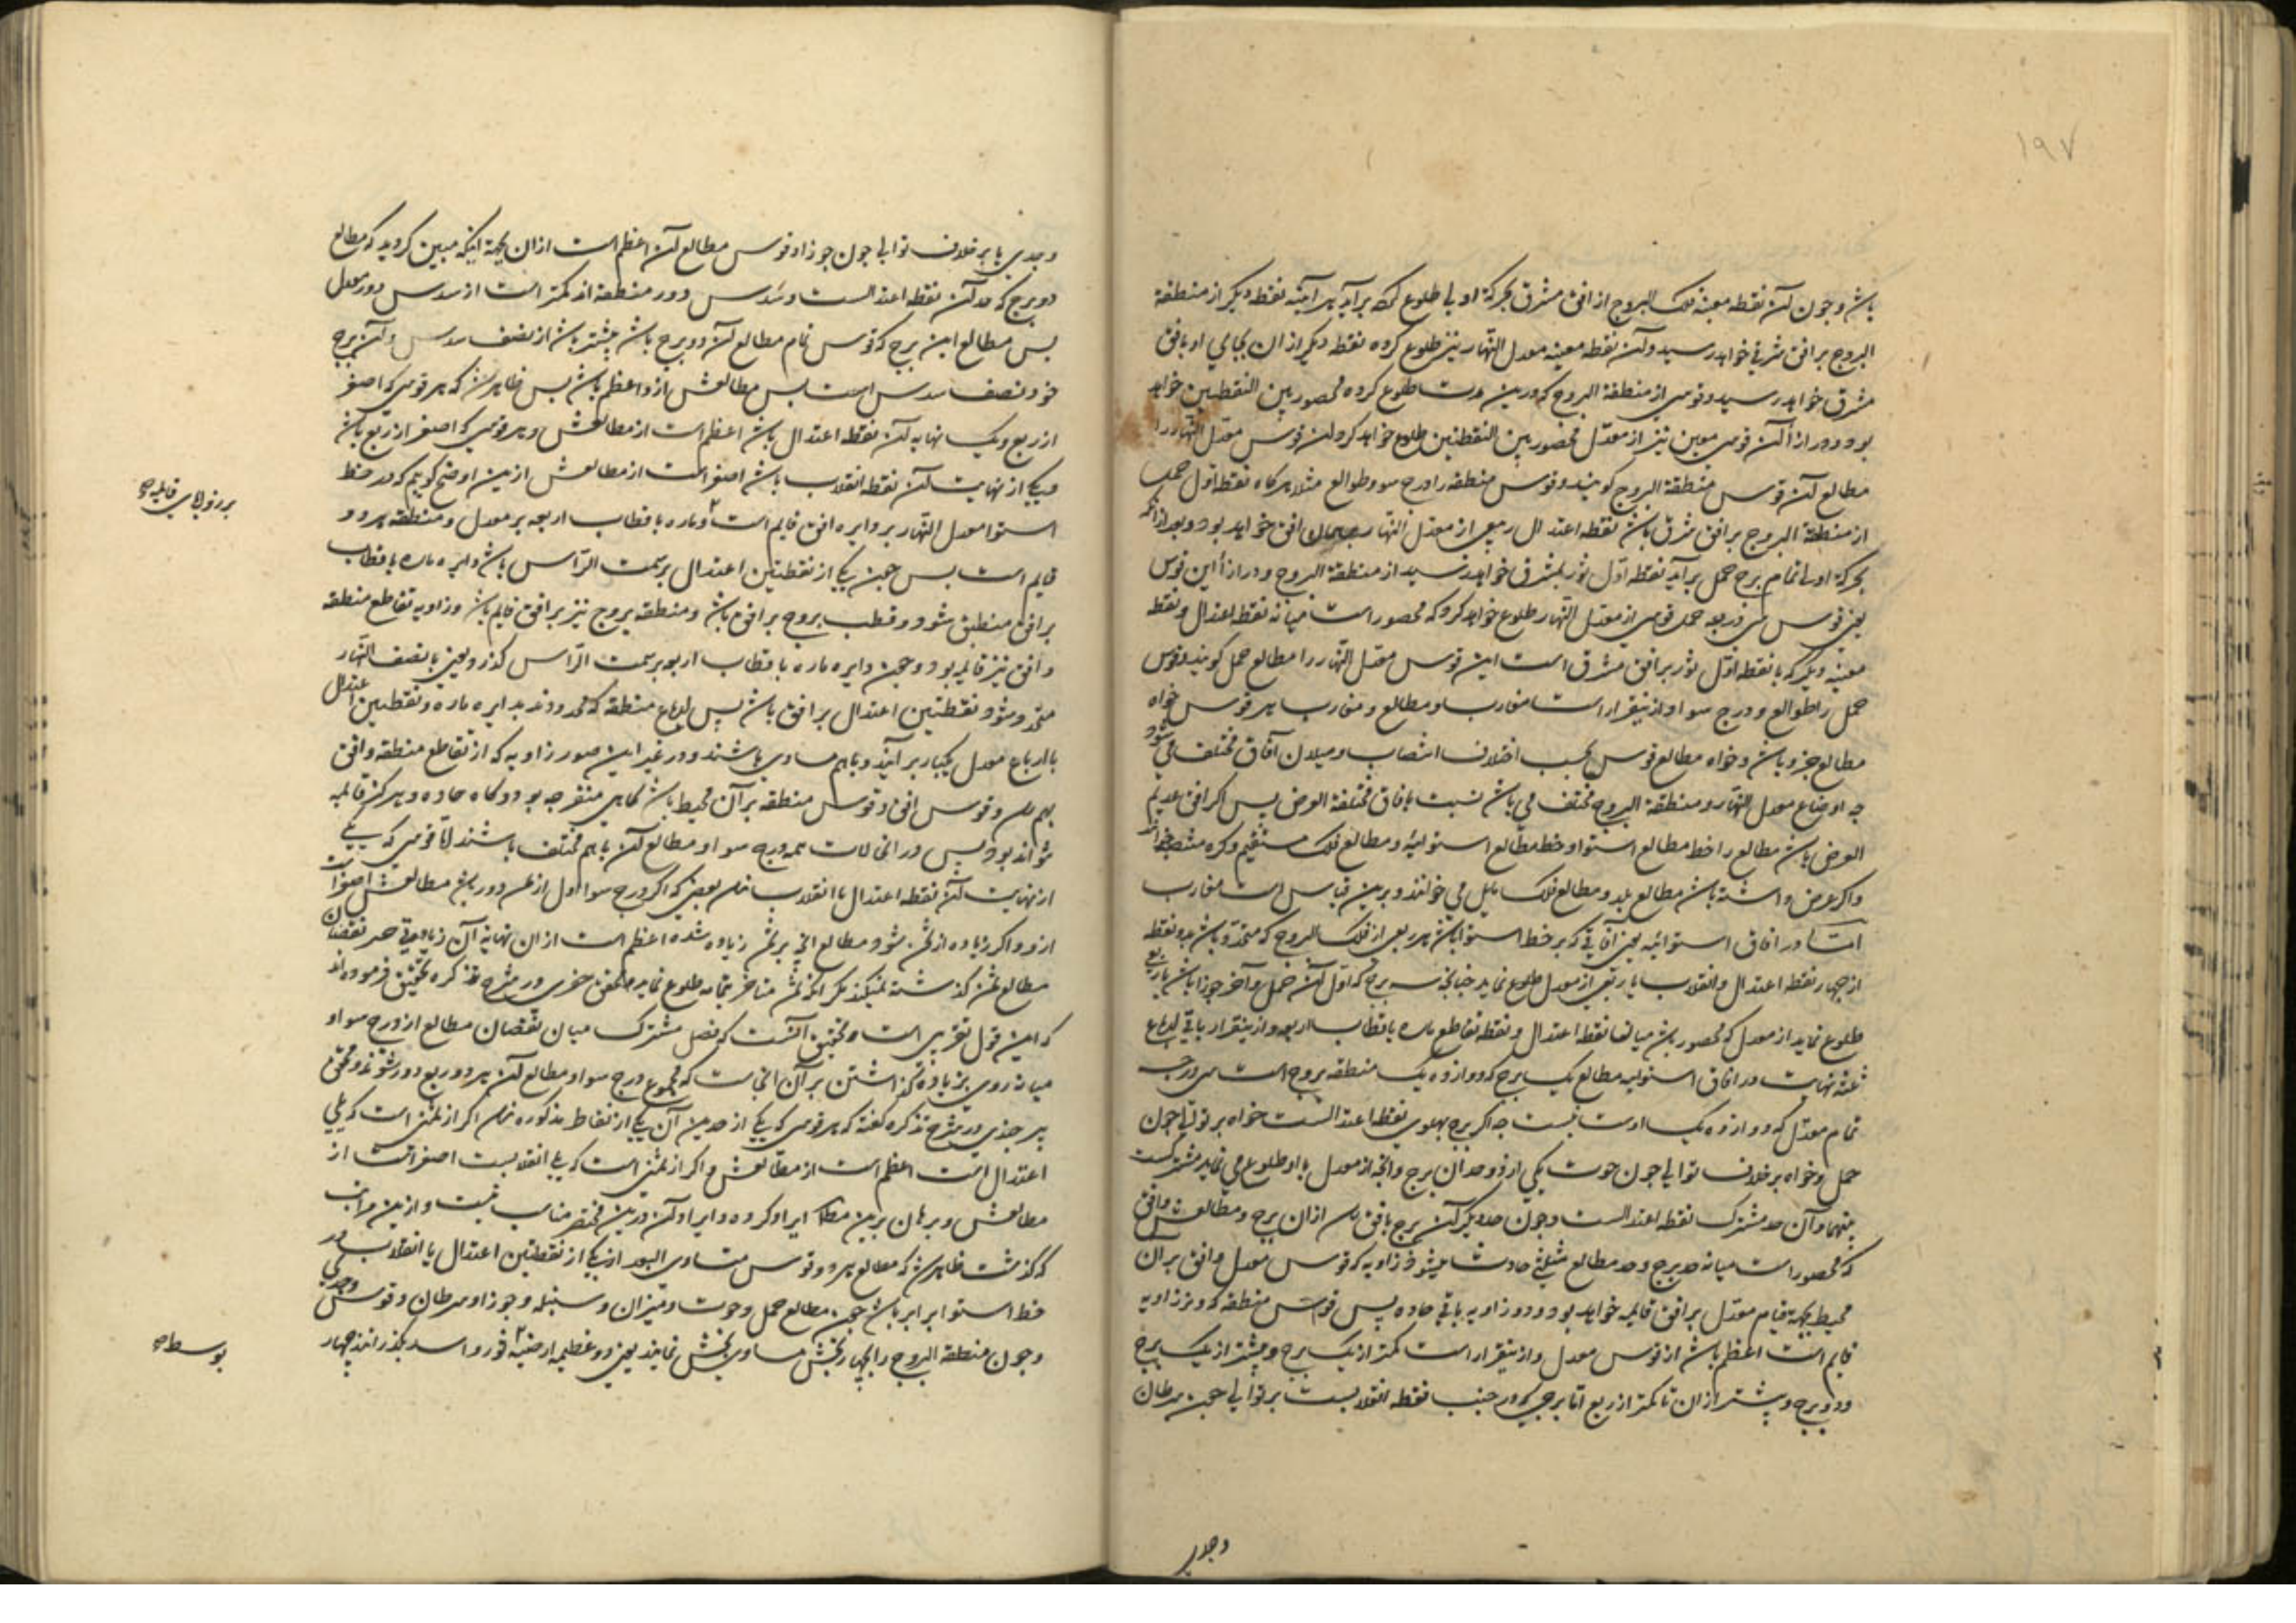 ۱۹۷
باشد و چون آن نقطه معینه فلک البروج از افق مشرق بحرکة اولی طلوع کرده برآید هر آینه نقطه دیگر از منطقة
البروج بر افق شرقی خواهد رسید و آن نقطه معینه معدل النهار نیز طلوع کرده نقطه دیگر ازان بجای او بافق
مشرق خواهد رسید و قوسی از منطقة البروج که درین مدت طلوع کرده محصور بین النقطتین خواهد
بود و در ازا آن قوسی معین نیز از معدل محصور بین النقطتین طلوع خواهد کرد و آن قوس معدل النهار را
مطالع آن قوس منطقة البروج گویند و قوس منطقه را درج سوا و طوالع مثلا هرگاه نقطه اول حمل
از منطقة البروج بر افق شرقی باشد نقطه اعتدال ربیعی از معدل النهار بر همان افق خواهد بود و بعد ازانکه
بحرکة اولی تمام برج حمل برآید نقطه اول ثور بمشرق خواهد رسید از منطقة البروج و در ازا این قوس
یعنی قوس سی درجه حمل قوسی از معدل النهار طلوع خواهد کرد که محصور است میانه نقطه اعتدال و نقطه
معینه دیگر که با نقطه اول ثور بر افق مشرق است این قوس معدل النهار را مطالع حمل گویند و قوس
حمل را طوالع و درج سوا و ازینقرار است مغارب و مطالع و مغارب هر قوس خواه
مطالع جزو باشد و خواه مطالع قوس بحسب اختلاف انتصاب و میلان آفاق مختلف می شود
چه اوضاع معدل النهار و منطقة البروج مختلف می باشد نسبت بافاق مختلفة العرض پس اگر افق عدیم
العرض باشد مطالع را خط مطالع استوا و خط مطالع استوائیه و مطالع فلک مستقیم و کره منتصبه خوانند
و اگر عرض داشته باشد مطالع بلد و مطالع فلک مایل می خوانند و برین قیاس است مغارب
اما در افاق استوائیه یعنی آفاقی که بر خط استوا باشد هر ربعی از فلک البروج که متحدد باشد بدو نقطه
از چهار نقطه اعتدال و انقلاب با ربعی از معدل طلوع نماید چنانچه سه برج که اول آن حمل و آخر جوزا باشد با ربعی
طلوع نماید از معدل که محصور باشد میانه نقطه اعتدال و نقطه تقاطع ماره باقطاب اربعه و ازینقرار باقی ارباع
ثلثه نهایت در افاق استوائیه مطالع یک برج که دوازده یک منطقه بروج است سی درجه
تمام معدل که دوازده یک اوست نیست چه اگر برج پهلوی نقطه اعتدالست خواه بر توالی چون
حمل و خواه بر خلاف توالی چون حوت یکی از دو حد آن برج و آنچه از معدل با او طلوع می نماید مشترکست
بینهما و آن حد مشترک نقطه اعتدالست و چون حد دیگر آن برج بافق رسد ازان برج و مطالعش و افق
که محصور است میانه حد برج و حد مطالع مثلثی حادث میشود زاویه که قوس معدل و افق بران
محیط بجهة قیام معدل بر افق قایمه خواهد بود و دو زاویه باقی حاده پس قوس منطقه که وتر زاویه
قایم است اعظم باشد از قوس معدل و ازینقرار است کمتر از یک برج و بیشتر از یک برج
و دو برج و بیشتر ازان تا کمتر از ربع اما برجی که در جنب نقطه انقلابست بر توالی چون سرطان
وجدی
و جدی یا بر خلاف توالی چون جوزا و قوس مطالع آن اعظم است ازان بجهة اینکه مبین گردید که مطالع
دو برج که حد آن نقطه اعتدالست و سدس دور منطقه اند کمتر است از سدس دور معدل
پس مطالع این برج که قوس تمام مطالع آن دو برج باشد بیشتر باشد از نصف سدس و آن برج
خود نصف سدس است پس مطالعش ازو اعظم باشد پس ظاهر شد که هر قوسی که اصغر
از ربع و یک نهایه آن نقطه اعتدال باشد اعظم است از مطالعش و هر قوسی که اصغر از ربع باشد
و یکی از نهایت آن نقطه انقلاب باشد اصغر است از مطالعش ازین اوضح گوییم که در خط
استوا معدل النهار بر دایره افق قایم است و ماره باقطاب اربعه بر معدل و منطقه هر دو
قایم است پس چون یکی از نقطتین اعتدال بر سمت الراس باشد دایره ماره باقطاب
بر افق منطبق شود و قطب بروج بر افق باشد و منطقه بروج نیز بر افق قایم باشد و زاویه تقاطع منطقه
و افق نیز قایمه بود و چون دایره ماره باقطاب اربعه بر سمت الراس گذرد یعنی با نصف النهار
متحد و شود و نقطتین اعتدال بر افق باشد پس ارباع منطقه که محدودند بدایره ماره و نقطتین اعتدال
با ارباع معدل یکبار برآیند و باهم مساوی باشند و در غیر این صور زاویه که از تقاطع منطقه و افق
بهم رسد و قوس افق و قوس منطقه بر آن محیط باشد گاهی منفرجه بود و گاه حاده و هرگز قایمه
نتواند بود پس در انحالات همه درج سوا و مطالع آن باهم مختلف باشند الا قوسی که یکی
از نهایت آن نقطه اعتدال یا انقلاب نباشد بعضی که اگر درج سوا اول از ثمن دور باشد مطالعش اصغر است
ازو و اگر زیاده از ثمن شود مطالع انچه بر ثمن زیاده شده اعظم است ازان نهایة آن زیادتی جبر نقصان
مطالع ثمن گذشته نمیکند مگر انکه ثمن متاخر بتمامه طلوع نماید و محقق خفری در شرح تذکره تحقیق فرموده اند
که این قول تقریبی است و تحقیق آنست که فصل مشترک میان نقصان مطالع از درج سوا و
میانه روی بزیاده گذاشتن بر آن انجاست که مجموع درج سوا و مطالع آن هر دو ربع دور شوند و محقق
بیرجندی در شرح تذکره گفته که هر قوسی که یکی از حدین آن یکی از نقاط مذکوره باشد اگر از ثمنی است که یلی
اعتدال است اعظم است از مطالعش و اگر از ثمنی است که یلی انقلابست اصغر است از
مطالعش و برهان برین مطلب ایراد کرده و ایراد آن درین مختصر مناسب نیست و ازین مراتب
که گذشت ظاهر شد که مطالع هر دو قوس متساوی البعد از یکی از نقطتین اعتدال یا انقلاب در
خط استوا برابر باشد چون مطالع حمل و حوت و میزان و سنبله و جوزا و سرطان و قوس و جدی
و چون منطقة البروج را بچهار بخش مساوی بخش نمایند یعنی دو عظیمه ارضیه ثور و اسد بگذرانند چهار
بوسط